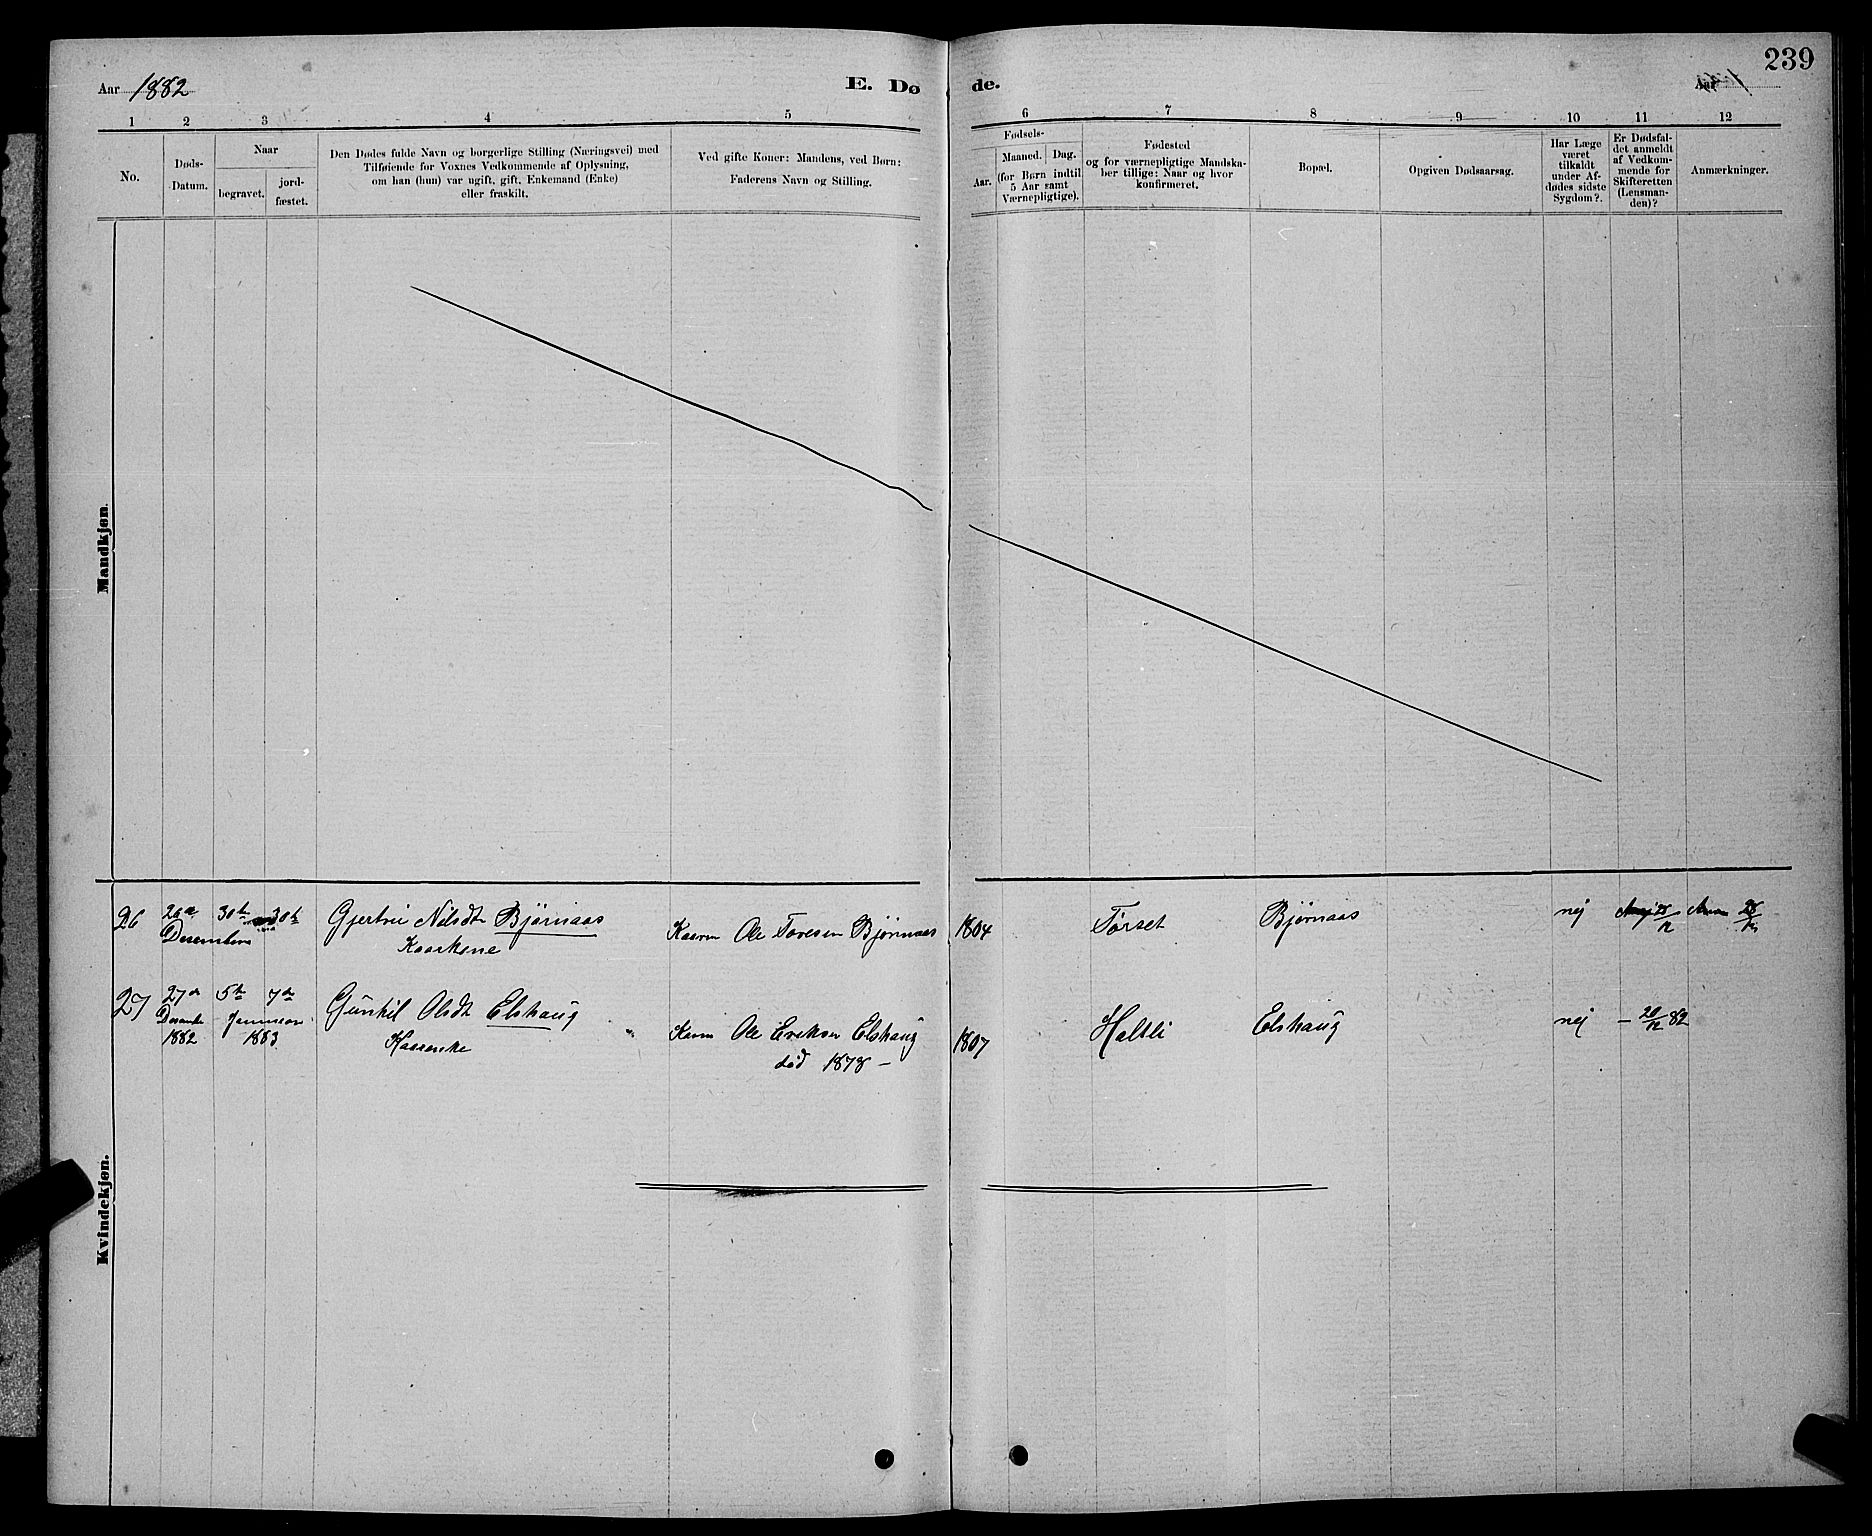 239
Aar 1882
E. Dø
de.
Aar
1 2 3 4 5
6 7 8 9 10 11 12
No.
Døds-
Datum.
Naar
begravet.
jord-
fæstet.
Den Dødes fulde Navn og borgerlige Stilling (Næringsvei) med
Tilføiende for Voxnes Vedkommende af Oplysning,
om han (hun) var ugift, gift, Enkemand (Enke)
eller fraskilt.
Ved gifte Koner: Mandens, ved Børn:
Faderens Navn og Stilling.
Fødsels-
Aar.
Maaned. Dag.
(for Børn indtil
5 Aar samt
Værnepligtige).
Fødested
og for værnepligtige Mandska-
ber tillige: Naar og hvor
konfirmeret.
Bopæl.
Opgiven Dødsaarsag.
Har Læge
været
tilkaldt
under Af-
dødes sidste
Sygdom?.
Er Dødsfal-
det anmeldt
af Vedkom-
mende for
Skifteretten
(Lensman-
den)?
Anmærkninger.
Mandkjøn.
Kvindekjøn.
26 30te 30te Gjertrue Nilsdt Bjørnaas
Kaarkone
Desember
Ole Toresen Bjørnaas 1804 Tørset Bjørnaas nej
27 27de 5te 7de Gunhil Olsdt Elshaug
1882 1883
Kaarenke
Ole Eriksen Elshaug 1807 Haltli Elshaug nej – 20/12 82
død 1878 –